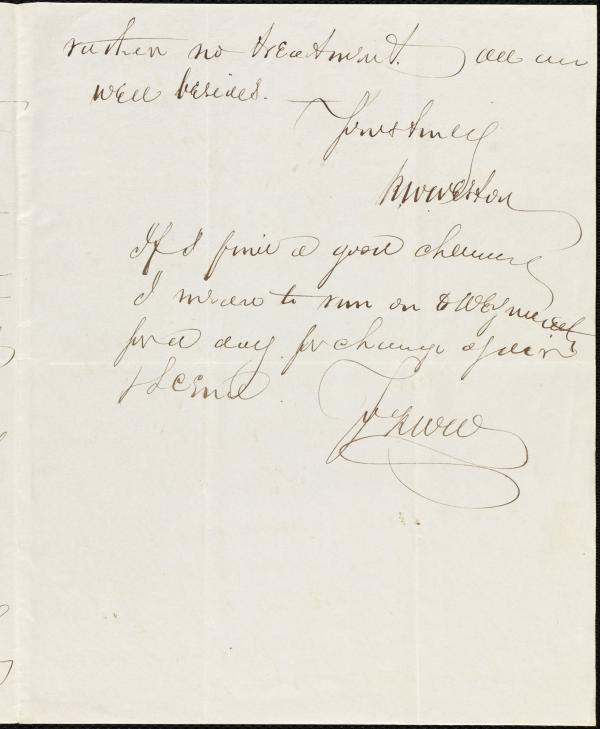 rather no treatment. All are
well besides. —
Yours truly
R W Weston
If I find a good chance
I mean to run on to Weymouth
for a day for change of air
& scene
Yr RWW